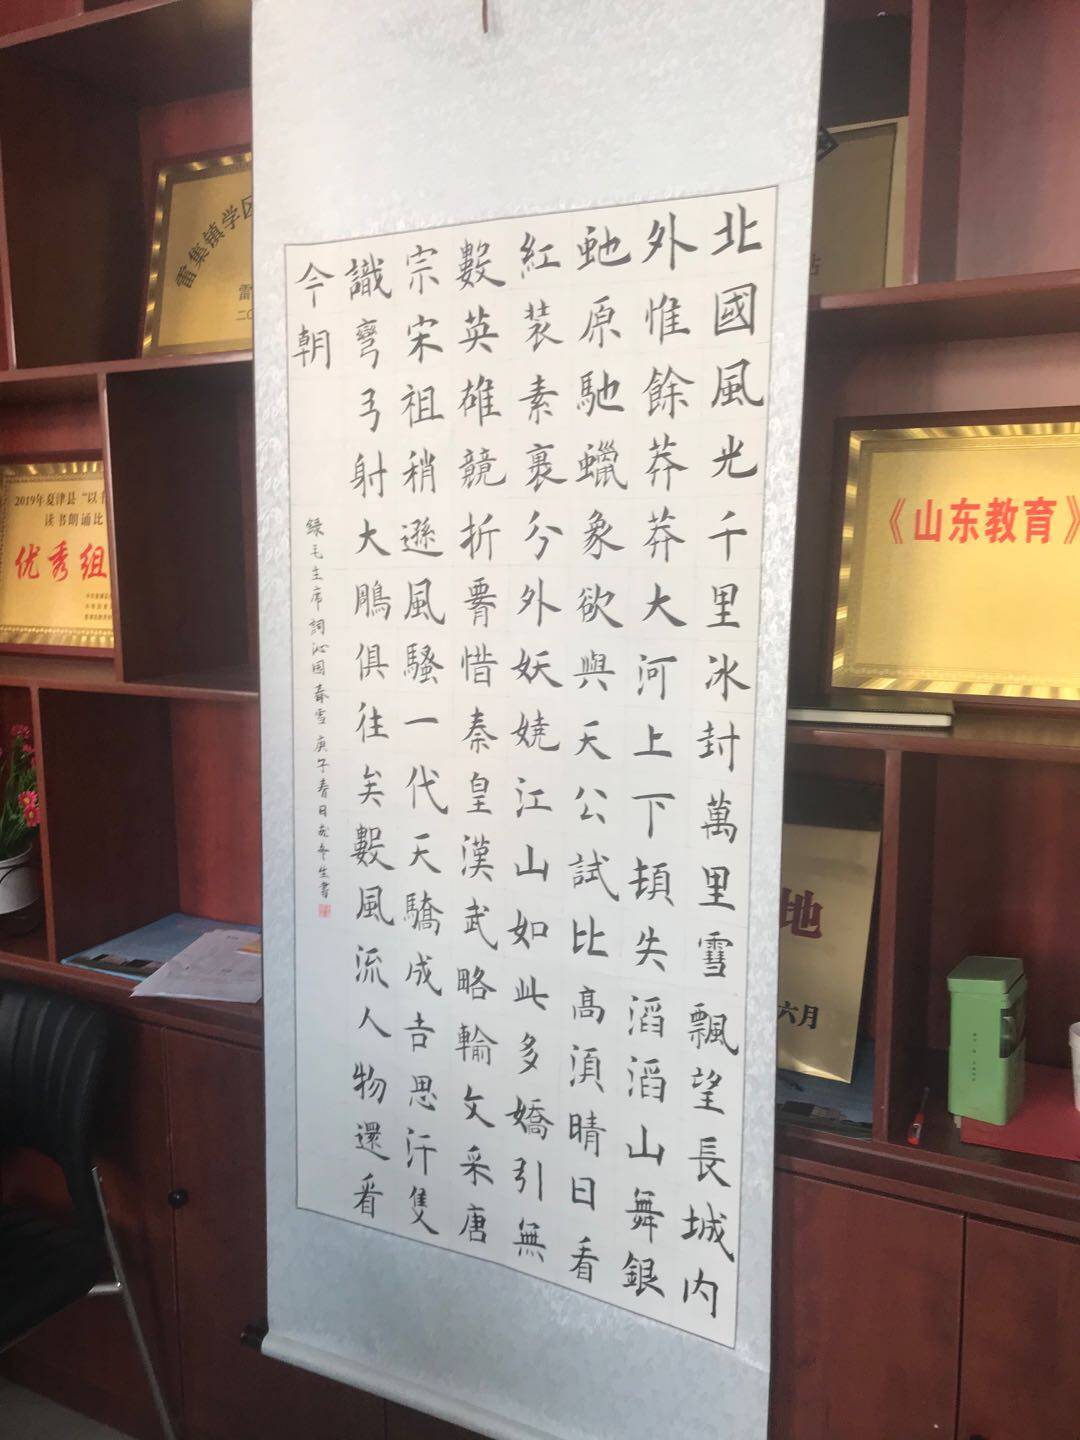 北國風光千里冰封萬里雪飄望長城内
外惟餘莽莽大河上下頓失滔滔山舞銀
虵原馳蠟象欲與天公試比高湏晴日看
紅装素裹分外妖嬈江山如此多嬌引無
數英雄競折腰惜秦皇漢武略輸文采唐
宗宋祖稍遜風騷一代天驕成吉思汗隻
識彎弓射大鵰俱往矣數風流人物還看
今朝
録毛主席詞沁园春雪庚午春日生書
雷集镇学区
雷
二〇
2019年夏津县“以
读书朗诵比
优秀组
《山东教育》
地
六月